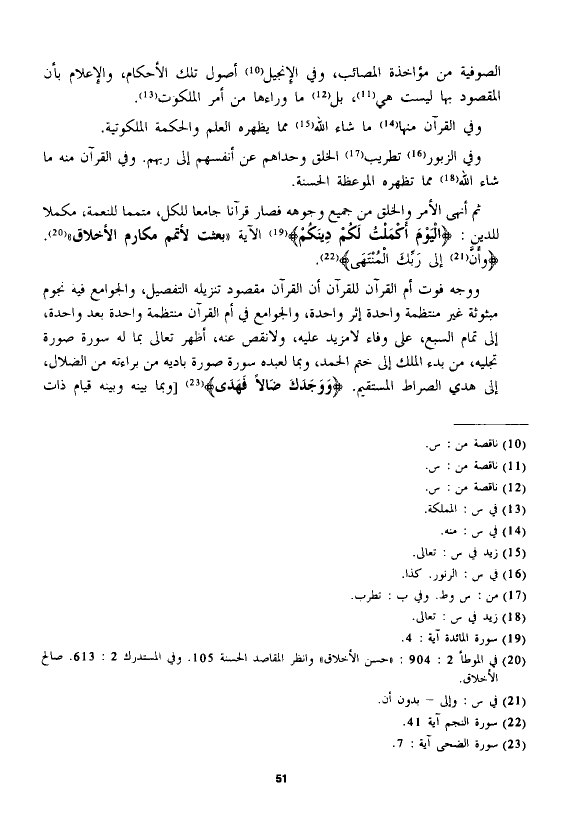 الصوفية من مؤاخذة المصائب، وفي الإنجيل(10) أصول تلك الأحكام، والإعلام بأن
المقصود بها ليست هي(11)، بل(12) ما وراءها من أمر الملكوت(13).
وفي القرآن منها(14) ما شاء الله(15) مما يظهره العلم والحكمة الملكوتية.
وفي الزبور(16) تطريب(17) الخلق وحداهم عن أنفسهم إلى ربهم. وفي القرآن منه ما
شاء الله(18) مما تظهره الموعظة الحسنة.
ثم أنهى الأمر والخلق من جميع وجوهه فصار قرآنا جامعا للكل، متمما للنعمة، مكملا
للدين : ﴿الْيَوْمَ أَكْمَلْتُ لَكُمْ دِينَكُمْ﴾(19) الآية «بعثت لأتمم مكارم الأخلاق»(20).
﴿وأنَّ(21) إلى رَبِّكَ الْمُنْتَهَى﴾(22).
ووجه فوت أم القرآن للقرآن أن القرآن مقصود تنزيله التفصيل، والجوامع فيه نجوم
مبثوثة غير منتظمة واحدة إثر واحدة، والجوامع في أم القرآن منتظمة واحدة بعد واحدة،
إلى تمام السبع، على وفاء لامزيد عليه، ولانقص عنه، أظهر تعالى بما له سورة صورة
تجليه، من بدء الملك إلى ختم الحمد، وبما لعبده سورة صورة باديه من براءته من الضلال،
إلى هدي الصراط المستقيم. ﴿وَوَجَدَكَ ضَالاً فَهَدَى﴾(23) [وبما بينه وبينه قيام ذات
(10) ناقصة من : س.
(11) ناقصة من : س.
(12) ناقصة من : س.
(13) في س : المملكة.
(14) في س : منه.
(15) زيد في س : تعالى.
(16) في س : الرنور. كذا.
(17) من : س وط. وفي ب : تطرب.
(18) زيد في س : تعالى.
(19) سورة المائدة آية : 4.
(20) في الموطأ 2 : 904 : «حسن الأخلاق» وانظر المقاصد الحسنة 105. وفي المستدرك 2 : 613. صالح
الأخلاق.
(21) في س : وإلى – بدون أن.
(22) سورة النجم آية 41.
(23) سورة الضحى آية : 7.
51